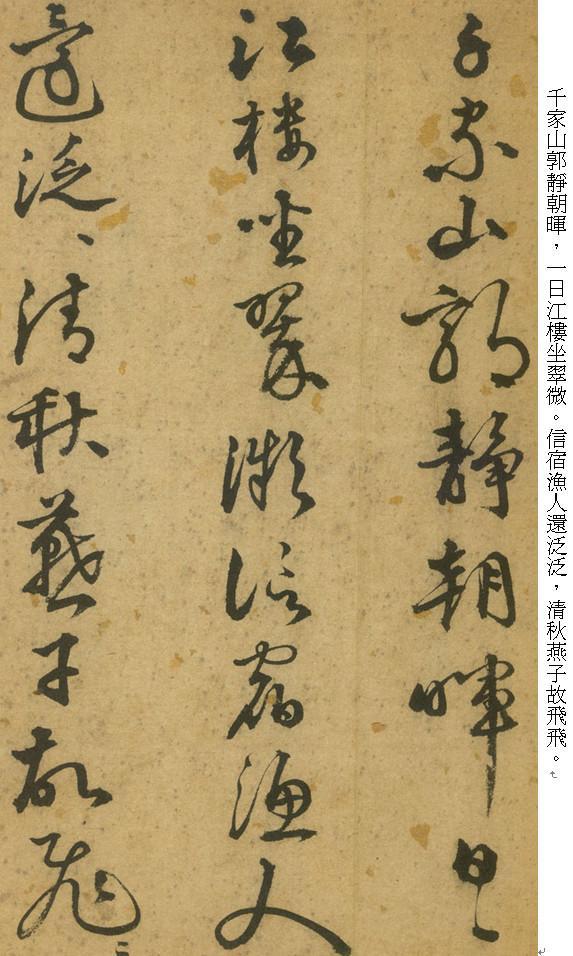 千家山郭靜朝暉，一日江樓坐翠微。信宿漁人還泛泛，清秋燕子故飛飛。
千家山郭靜朝暉日〻
江樓坐翠微信宿漁人
還泛〻清秋燕子故飛〻